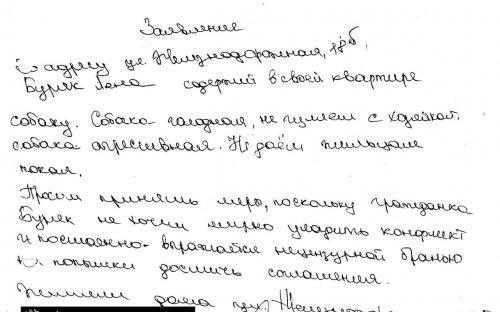 Заявление
адресу ул. Железнодорожная,
Буряк Лена содержит в своей квартире
собаку. Собака голодная, не гуляет с хозяйкой.
собака агресивная. Не даёт жильцам
покоя.
Просим принять меры, поскольку гражданка
Буряк не хочет мирно уладить конфликт
и постоянно выражается нецензурной бранью
попытки достичь соглашения.
дома ул.